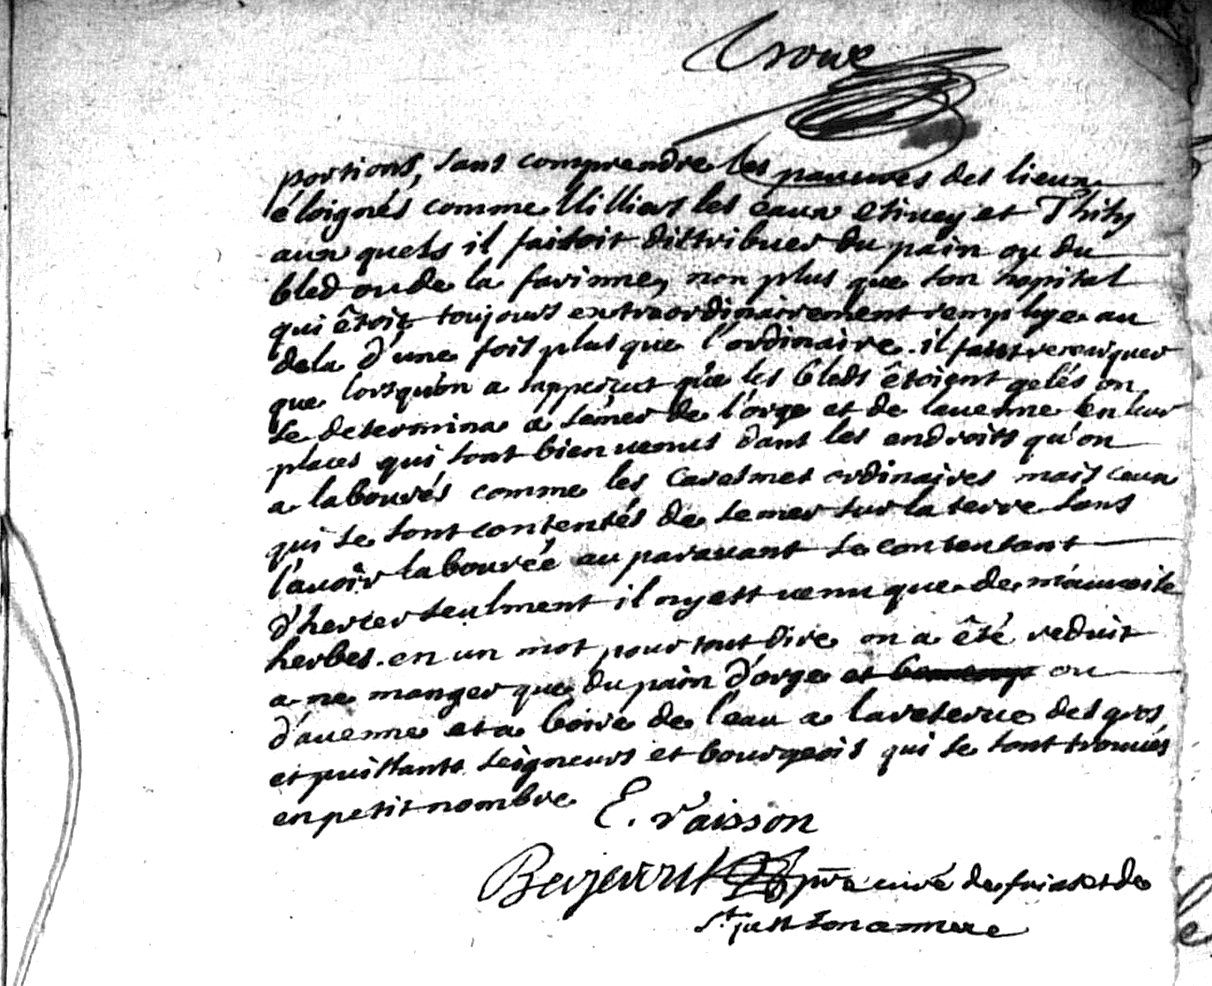 portions, sans comprendre les pauvres des lieux
éloignés comme Villiers les eaux etivey et Thisy
aux quels il faisoit distribuer du pain ou du
bled ou de la farinne, non plus que son hopital
qui êtoit toujours extraordinairement remplye au
dela d'une fois plus que l'ordinaire. il faut remarquer
que lorsqu'on a sapperçut que les bleds êtoient gelés on
se determina a semer de l'orge et de lauenne en leur
places qui sont bien venus dans les endroits qu'on
a labourés comme les Caresmes ordinaires mais ceux
qui se sont contentés de semer sur la terre sans
l'avoir labourée au paravant se contentant
d'herser seulment il ny est venu que de mauvaise
herbes. en un mot pour tout dire on a été reduit
a ne manger que du pain d'orge et ou
d'auenne et a boire de l'eau a la reserue des gros
et puissants seigneurs et bourgeois qui se sont trouués
en petit nombre
E. raisson
pre curé de et de
st just son annexe